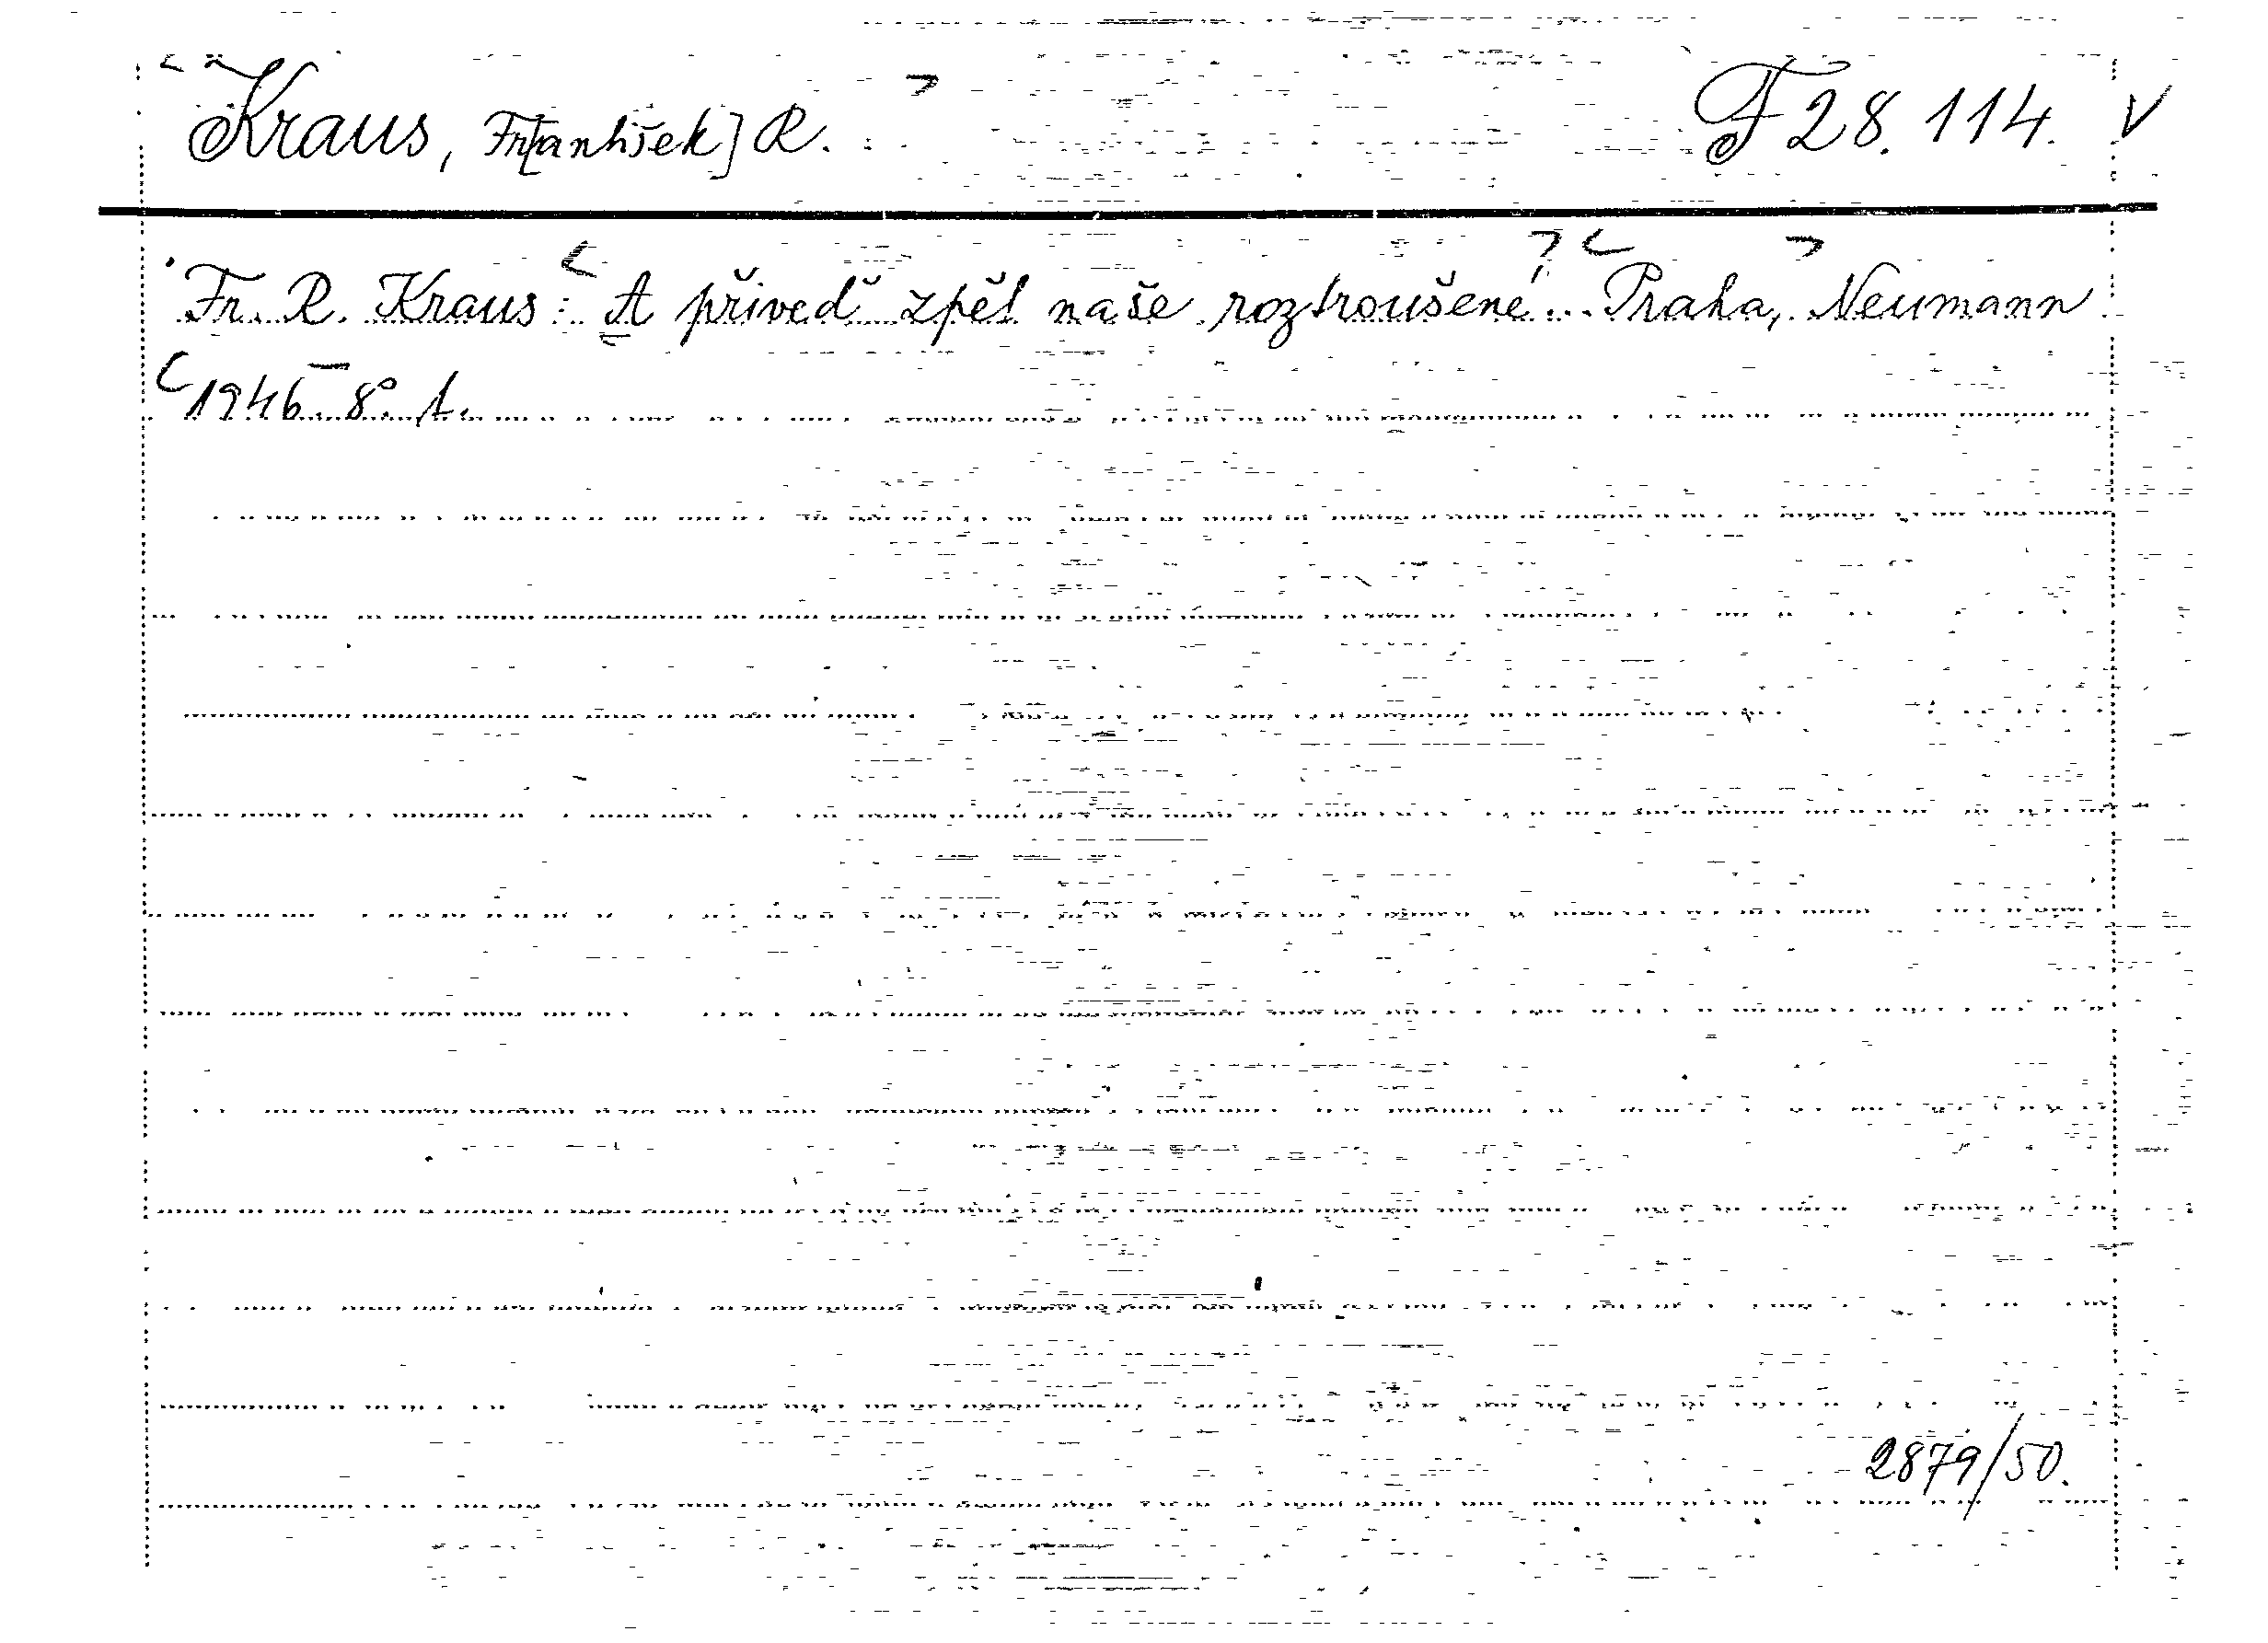 Kraus, Fr[antišek] R. F 28.114. V
Fr. R. Kraus: A přiveď zpět naše roztroušené... Praha, Neumann
1946. 8°. 1.
2879/50.